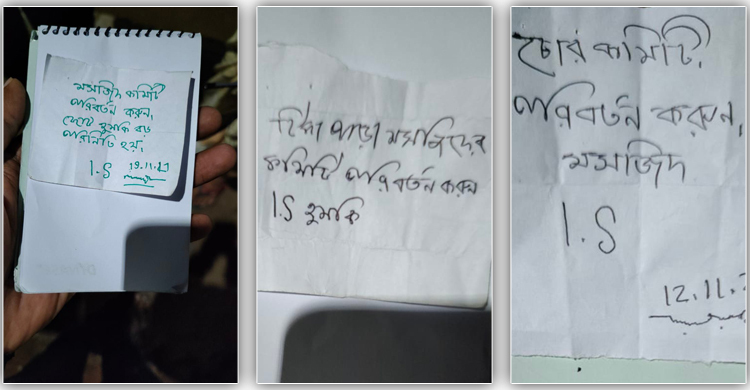 মসজিদ কমিটি
পরিবর্তন করুন,
হুমকি বড়
পরিনিতি হয়,
I.S
টিকা পাড়া মসজিদের
কমিটি পরিবর্তন করুন
I.S হুমকি
চোর কমিটি,
পরিবর্তন করুন,
মসজিদ
I.S
12.11.